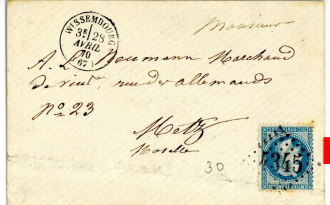 WISSEMBOURG
3E 28
AVRIL
70
(67)
Monsieur
A. L. Neumann Marchand
de vin, rue des allemands
No 23
Metz
Moselle
30